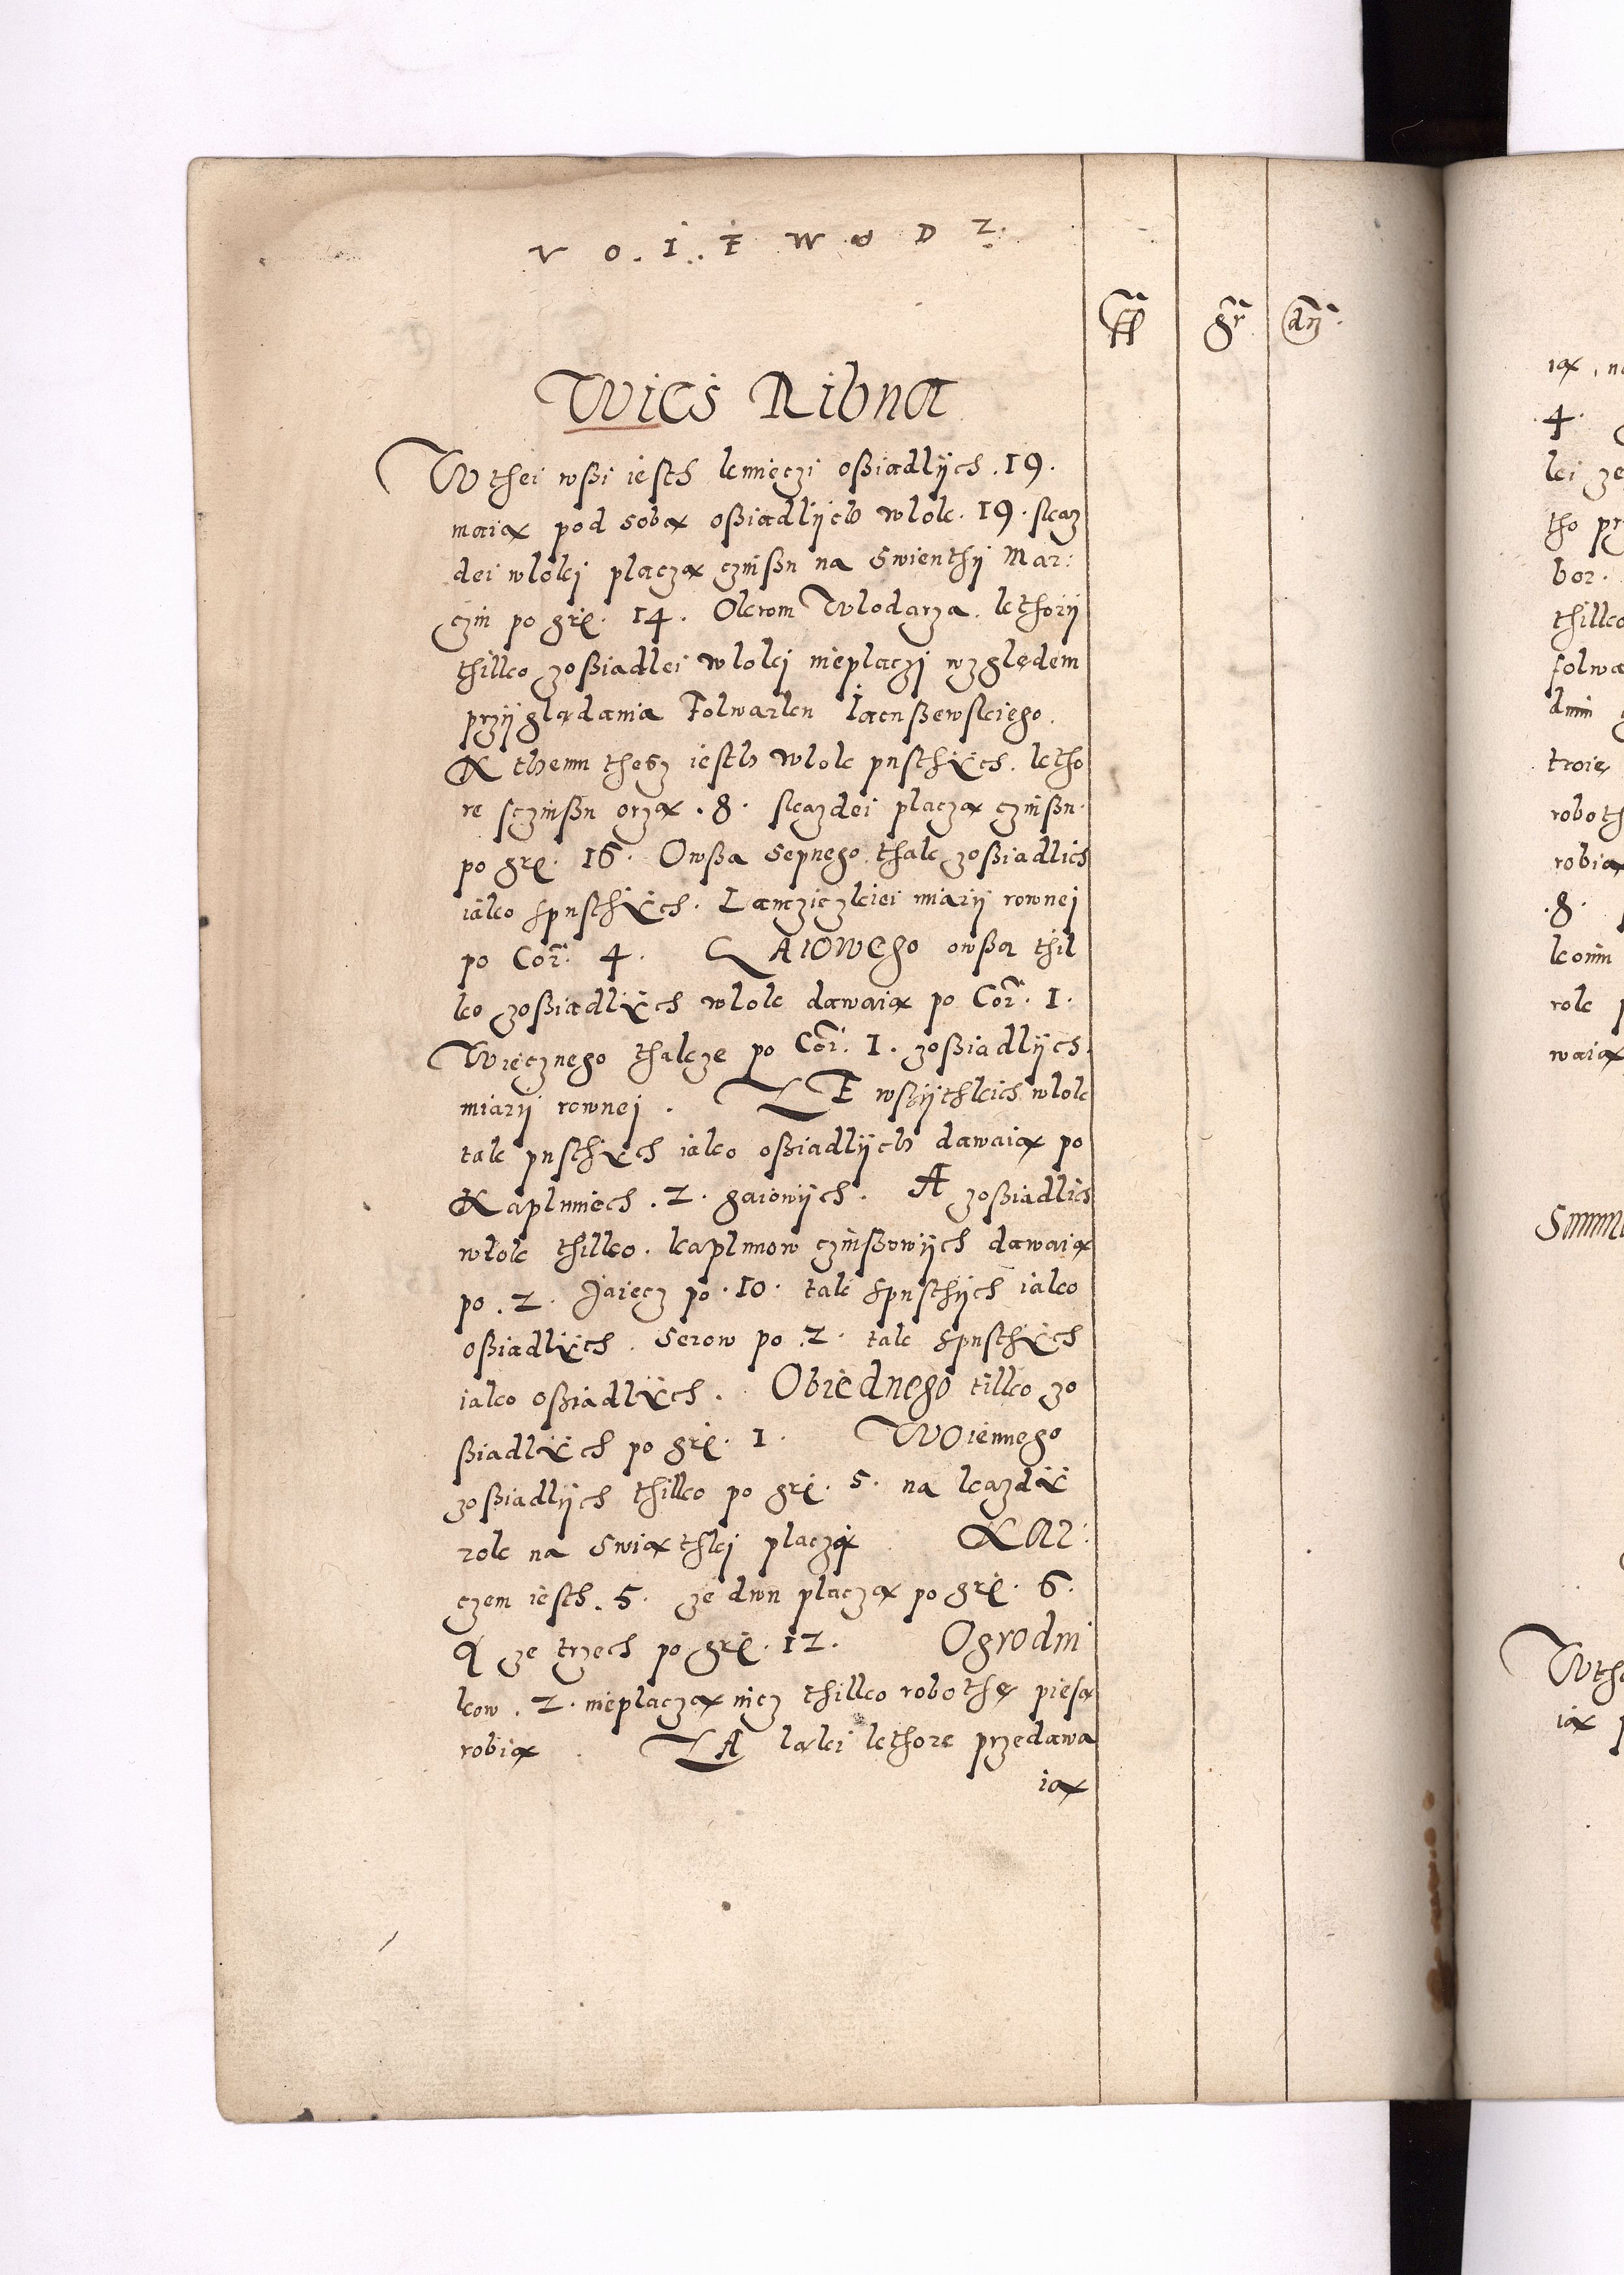 V O. I. E W O D Z.
ff gr dn.
Wies Ribna
W thei wßi iesth kmięczi oßiadlÿch . 19.
maią pod sobą oßiadlÿch wlok . 19 . skaz
dei wloki placzą czinßu na Swienthÿ Mar:
czin po grę. 14. Okrom Wlodarza kthorÿ
thilko zoßiadlei wloki nieplaczi względem
przÿglądania Folwarku Iacußewskiego.
K themu thesz iesth wlok pusthÿch. ktho
re sczinßu orzą . 8. skazdei placzą czinßu.
po grę. 16. Owßa Sepnego thak zoßiadlich
iako spusthÿch. Lanczickiei miarÿ rownei
po Cor. 4. GAIOWego owßa thil
ko zoßiadlÿch wlok dawaią po Cor. 1.
Wiecznego thakze po Cor. 1. zoßiadlÿch.
miarÿ rownei . ZE wßÿthkich wlok
tak pusthÿch iako oßiadlÿch dawaią po
Kapluniech . 2 . gaiowÿch. A zoßiadlich
wlok thilko . kaplunow czinßowÿch dawaią
po . 2. Jaiecz po . 10. tak spusthÿch iako
oßiadlÿch . Serow po . 2. tak spusthÿch
iako oßiadlÿch . Obiednego tilko zo
ßiadlÿch po grę. 1. Woiennego
zoßiadlÿch thilko po grę. 5. na kazdÿ
rok na Swiąthki placzą . KAR:
czem iesth . 5. ze dwu placzą po grę. 6.
A ze trzech po grę. 12. Ogrodni
kow . 2. nieplaczą nicz thilko robothę piesą
robią . ZA ląki kthore przedawa
ią
ią, n
4.
ki ze
tho pr
bor.
thilko
folwa
dnin
troie
roboth
robią
.8.
konm
rok p
waią
Summ
W th
ią p